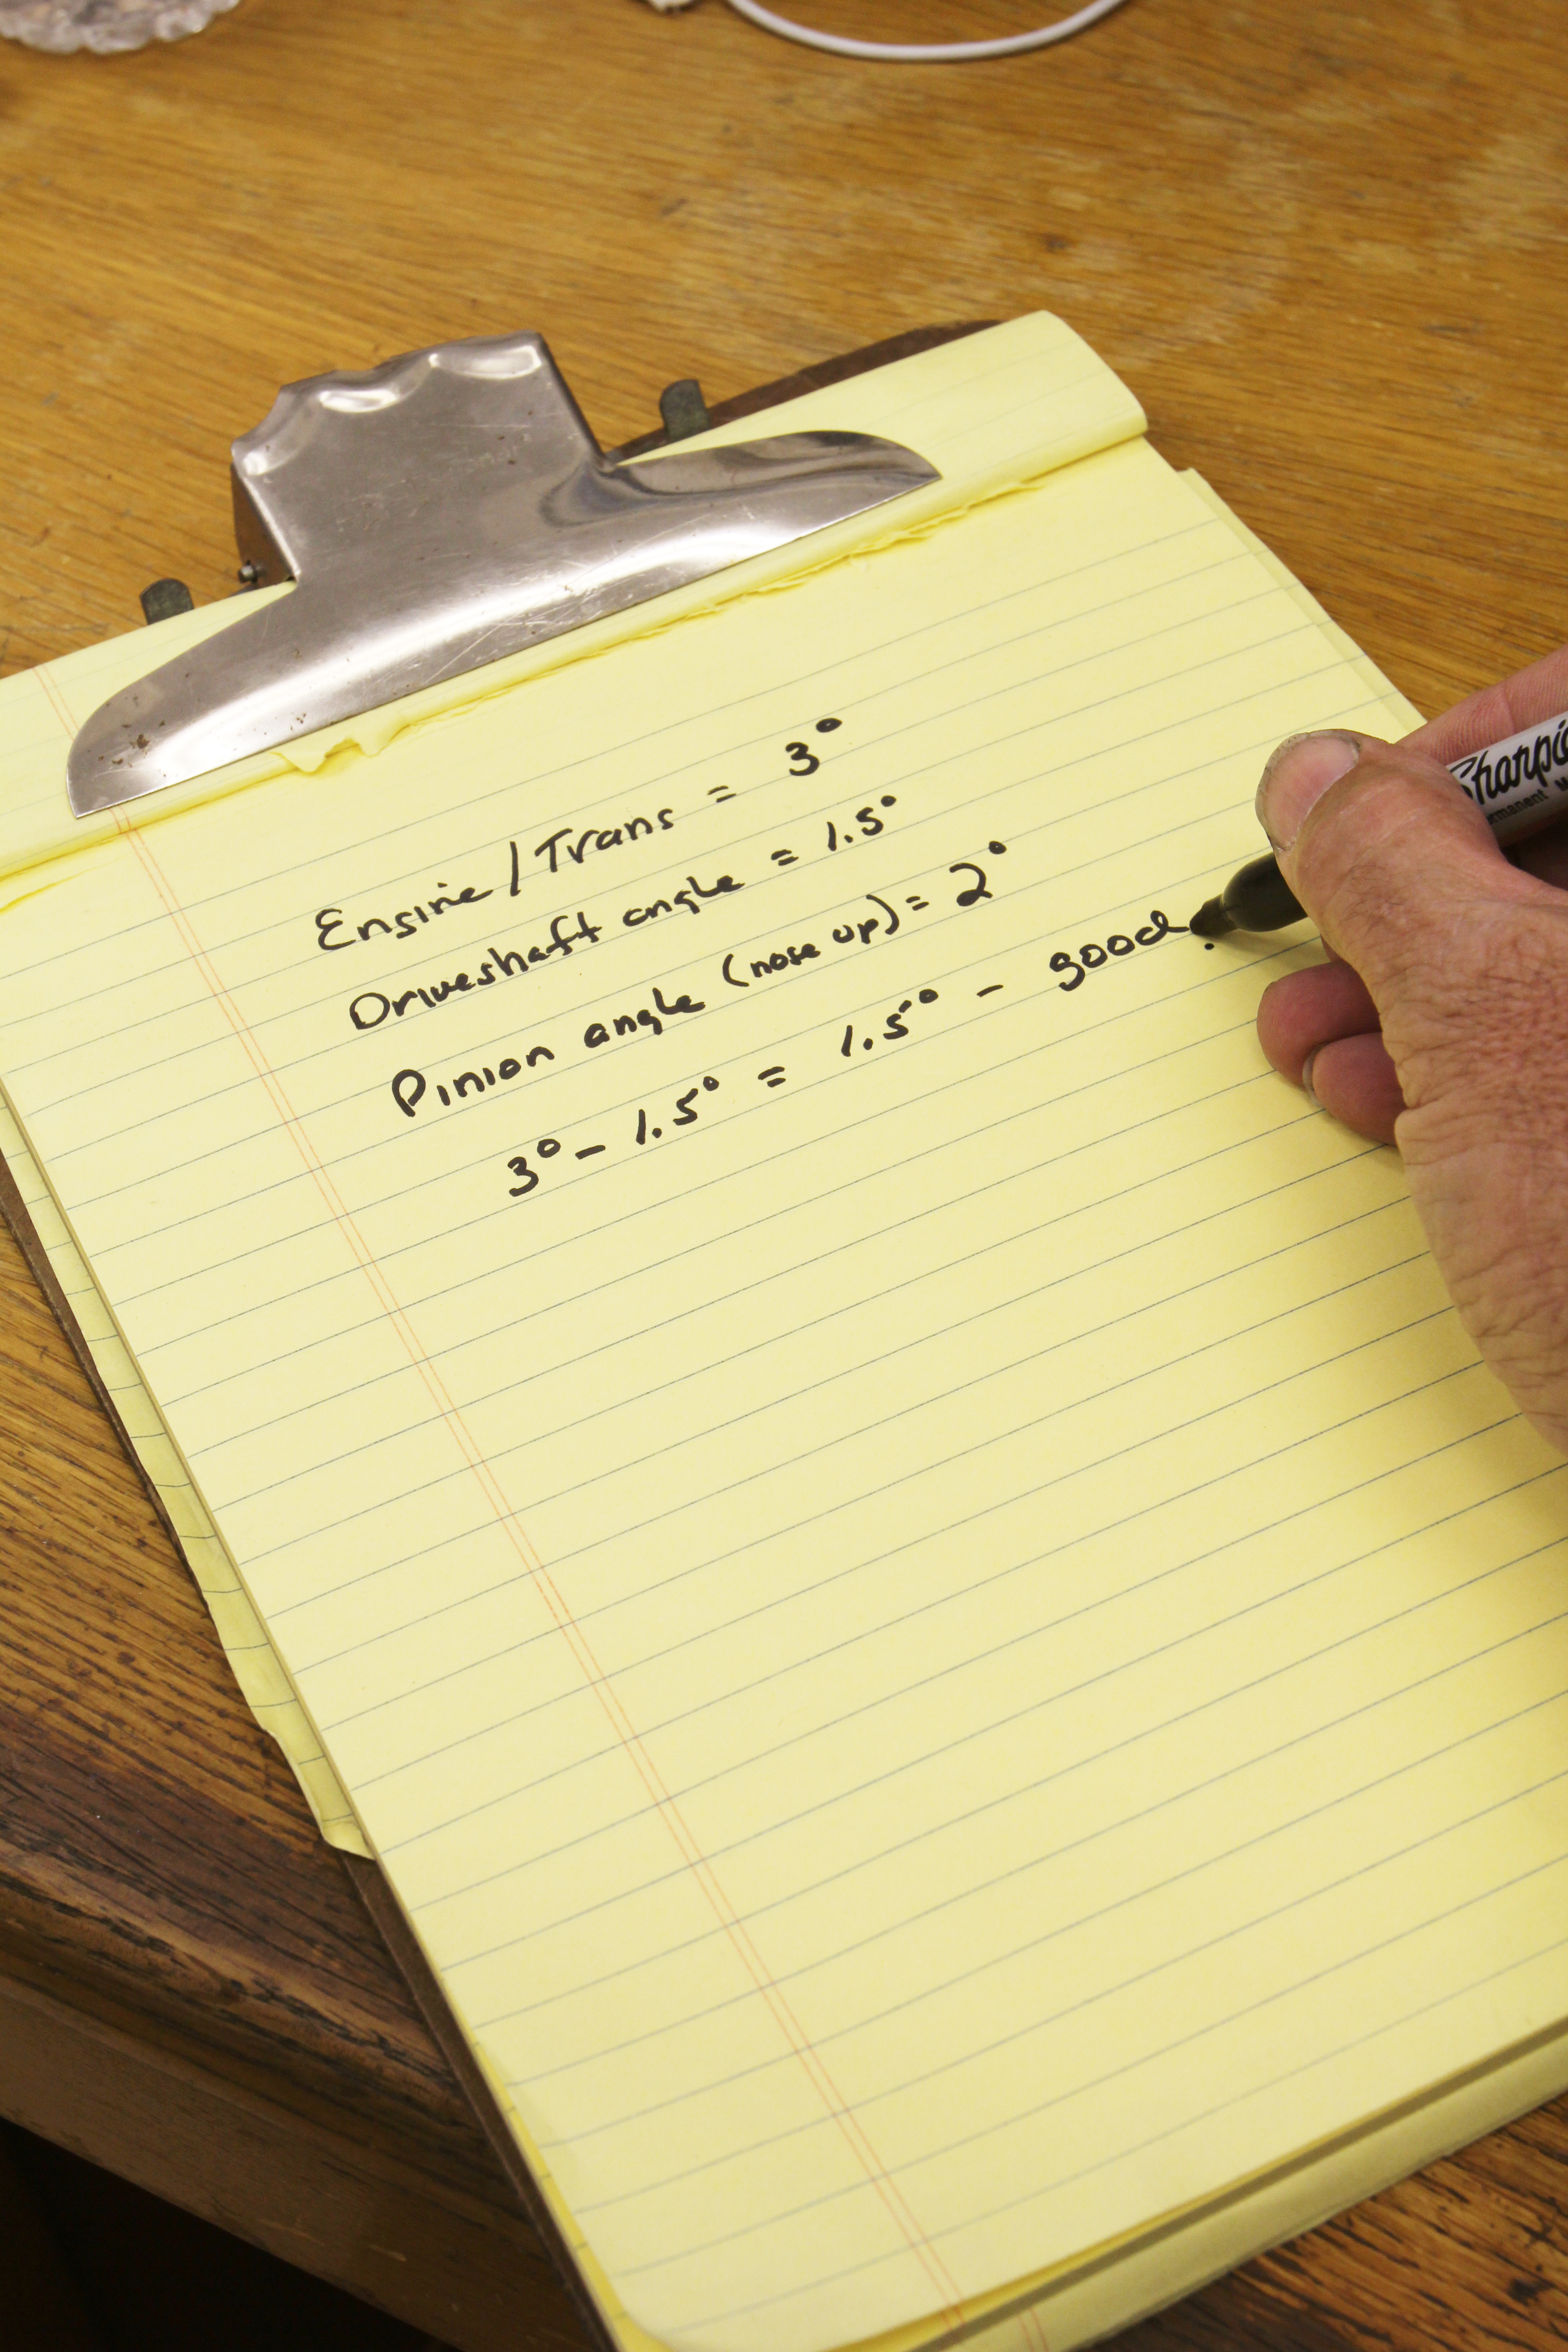 Engine/Trans = 3°
Driveshaft angle = 1.5°
Pinion angle (nose up) = 2°
3° - 1.5° = 1.5° - good.
Sharpie